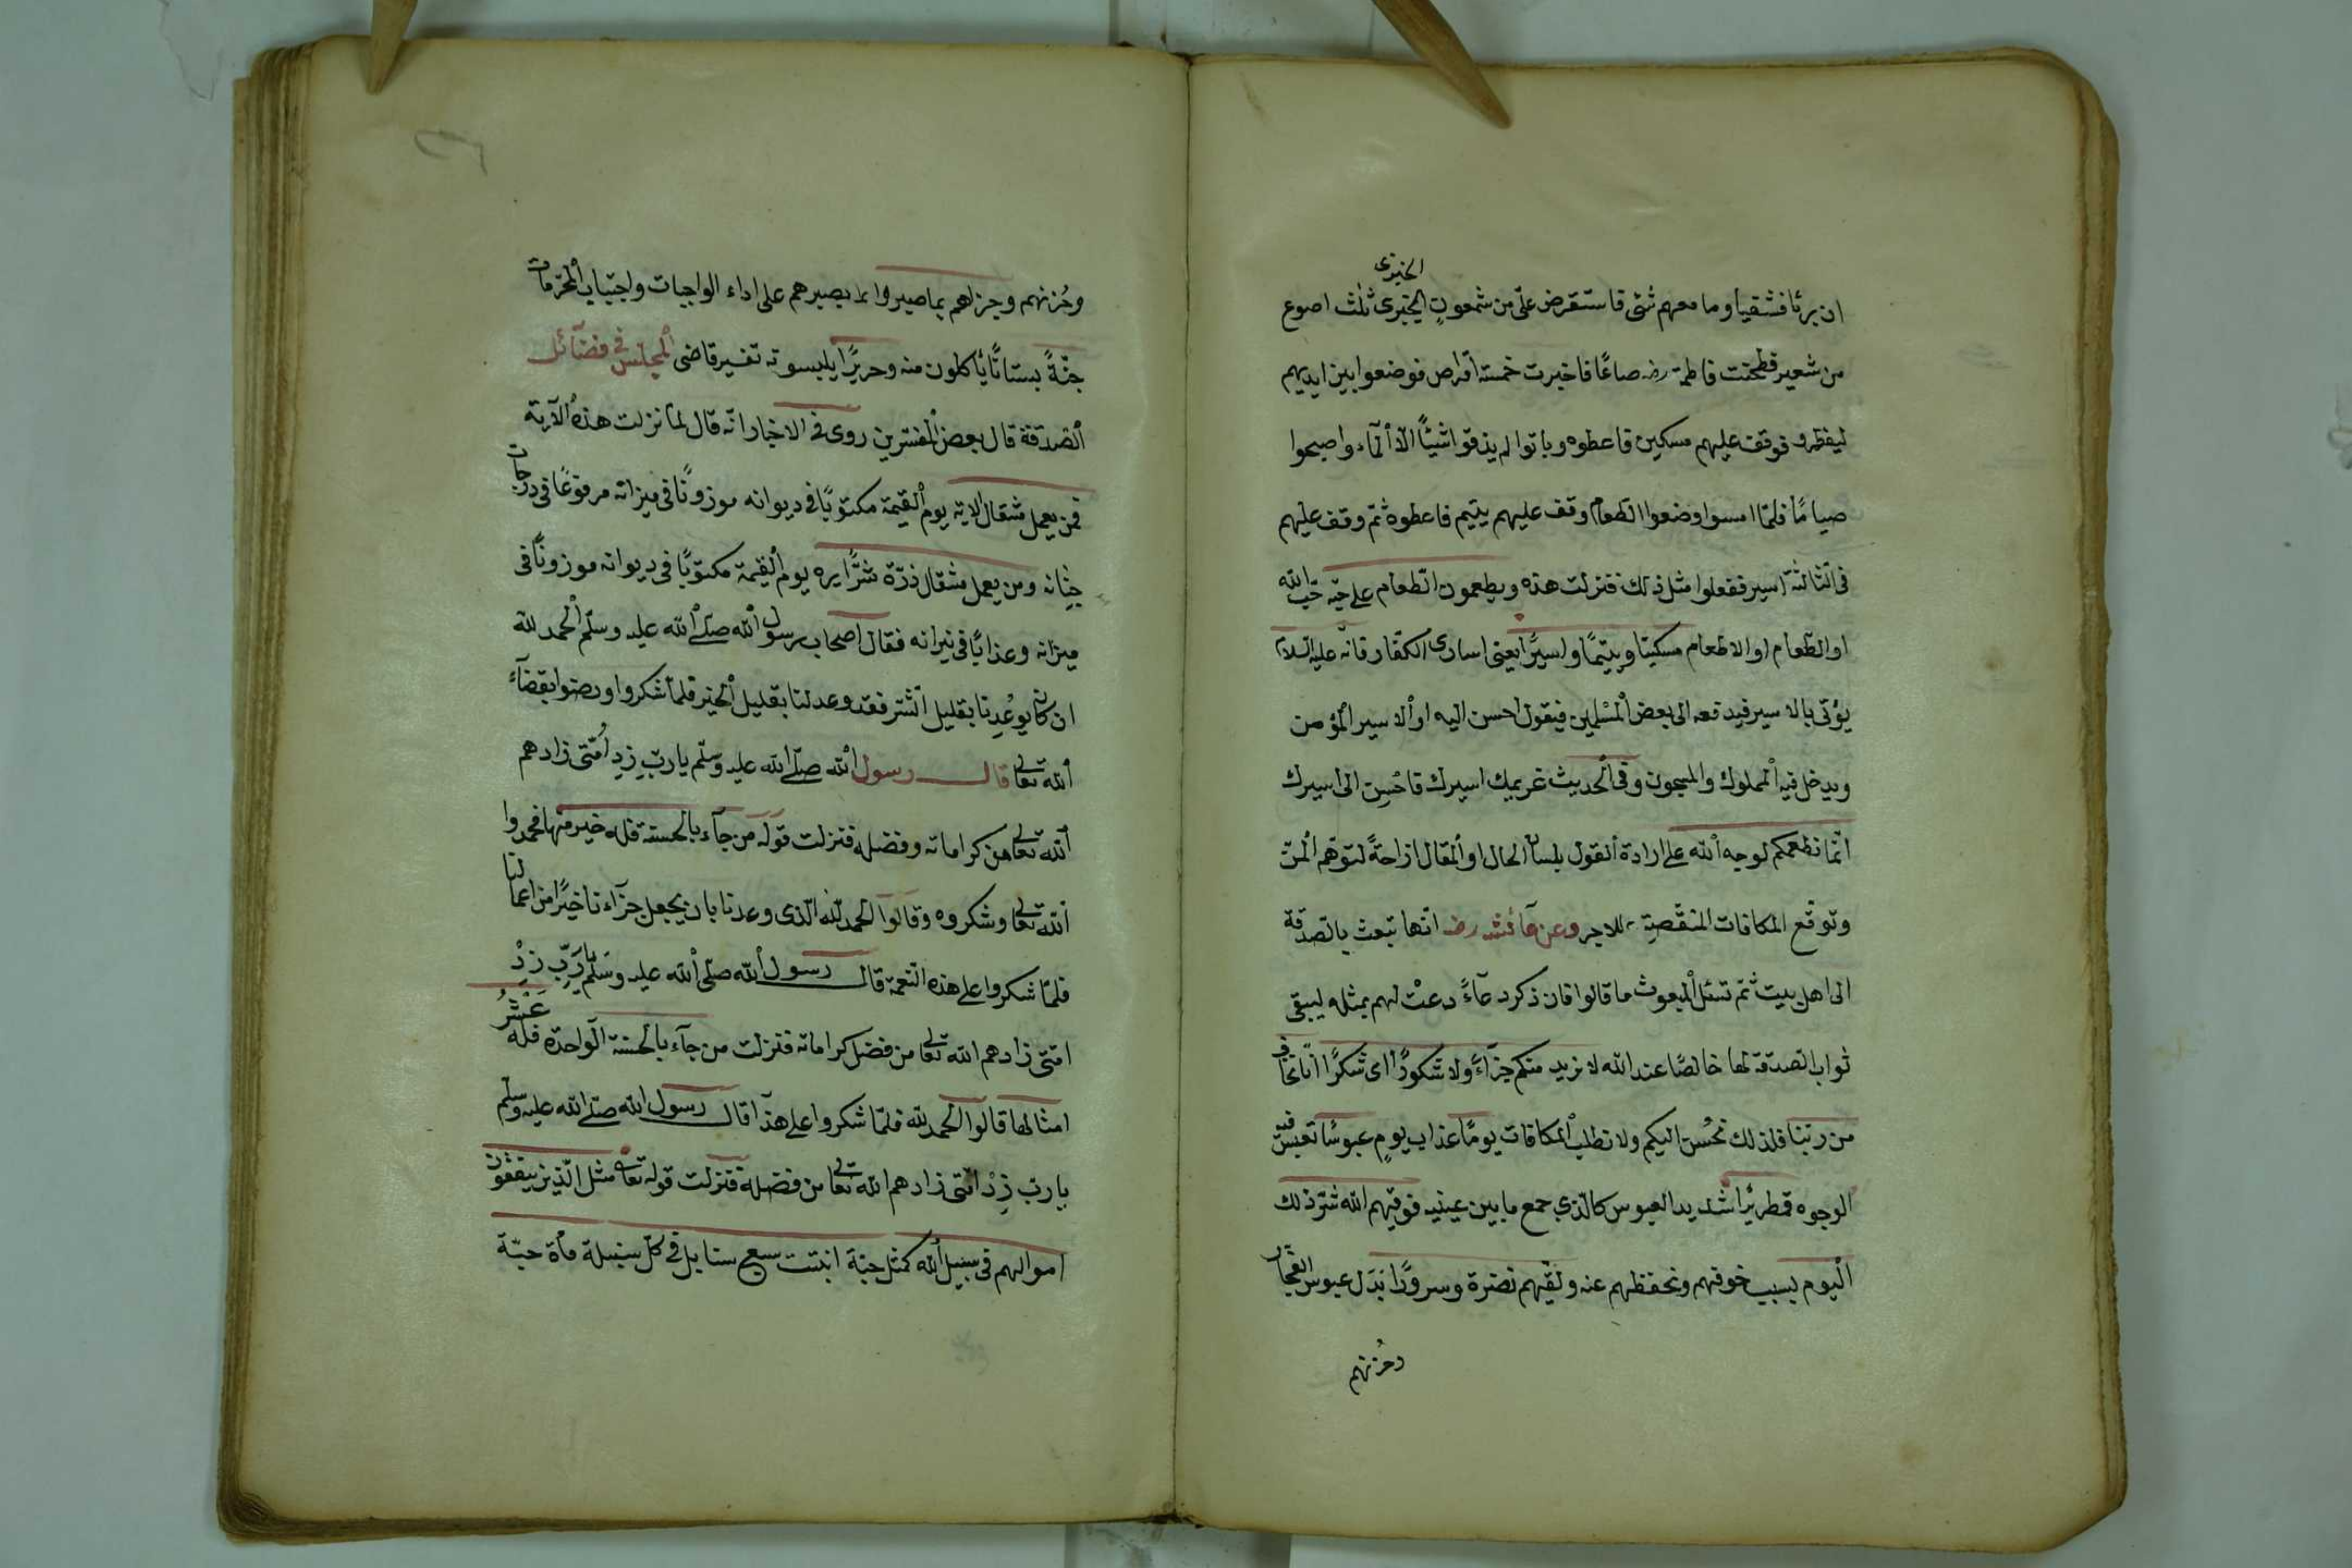 الخيبرى
ان برئا فشفيا وما معهم شئ فاستقرض علىّ من شمعون الخيبرى ثلث اصوع
من شعير فطحنت فاطمة رضـ صاعًا فاخبزت خمسة اقراص فوضعوا بين ايديهم
ليفطروا فوقف عليهم مسكين فاعطوه وباتوا لم يذقوا شيئًا الّا الماء واصبحوا
صيامًا فلمّا امسوا وضعوا الطعام وقف عليهم يتيم فاعطوه ثمّ وقف عليهم
فى الثالثة اسير ففعلوا مثل ذلك فنزلت هذه ويطعمون الطّعام على حبّه حبّ الله
او الطّعام او الاطعام مسكينا ويتيمًا واسيرًا يعنى اسارى الكفّار فانّه عليه السّلام
يؤتى بالاسير فيدفعه الى بعض المسلمين فيقول احسن اليه او الاسير المؤمن
ويدخل فيه المملوك والمسجون وفى الحديث غريمك اسيرك فاحسن الى اسيرك
انّما نطعمكم لوجه الله على ارادة القول بلسان الحال او المقال ازاحةً لتوهّم المنّ
وتوقّع المكافات المنقّصة للاجر وعن عائشه رضـ انّها تبعث بالصّدقة
الى اهل بيت ثمّ تسئل المبعوث ما قالوا فان ذكر دعاءً دعت لهم بمثله ليبقى
ثواب الصّدقة لها خالصًا عند الله لا نريد منكم جزآءً ولا شكورًا اى شكرًا انّا نخاف
من ربّنا فلذلك نحسن اليكم ولا نطلب المكافات يومًا عذاب يومٍ عبوسًا تعبس فيه
الوجوه قمطريرًا شديد العبوس كالّذى جمع ما بين عينيه فوقيهم الله شرّ ذلك
اليوم بسبب خوفهم وتحفظهم عنه ولقّيهم نضرة وسرورًا بدل عبوس الفجّار
وحزنهم
وحُزنهم وجزاهم بما صبروا بصبرهم على اداء الواجبات واجتناب المحرّمات
جنّةً بستانًا يأكلون منه وحريرًا يلبسونه تفسير قاضى المجلس فى فضآئل
الصدقة قال بعض المفسّرين روى فى الاخبار انّه قال لمّا نزلت هذه الآية
فمن يعمل مثقال الاية يوم القيمة مكتوبًا فى ديوانه موزونًا فى ميزانه مرفوعًا فى درجات
جنانه ومن يعمل مثقال ذرّة شرًّا يره يوم القيمة مكتوبًا فى ديوانه موزونًا فى
ميزانه وعذابًا فى نيرانه فقال اصحاب رسول الله صلّى الله عليه وسلّم الحمد لله
ان كان يوعدنا بقليل الشّر فقد وعدلنا بقليل الخير فلمّا شكروا ورضوا بقضآء
الله تعالى قال رسول الله صلّى الله عليه وسلّم يا ربّ زد امّتى زادهم
الله تعالى من كراماته وفضله فنزلت قوله من جآء بالحسنة فله خير منها فحمدوا
الله تعالى وشكروه وقالوا الحمد لله الّذى وعدنا بان يجعل جزآءنا خيرًا من اعمالنا
فلمّا شكروا على هذه النّعمة قال رسول الله صلّى الله عليه وسلّم يا ربّ زد
امّتى زادهم الله تعالى من فضل كراماته فنزلت من جآء بالحسنة الواحدة فله عَشْرُ
امثالها قالوا الحمد لله فلمّا شكروا على هذا قال رسول الله صلّى الله عليه وسلّم
يا ربّ زد امّتى زادهم الله تعالى من فضله فنزلت قوله تعالى مثل الّذين ينفقون
اموالهم فى سبيل الله كمثل حبّة انبتت سبع سنابل فى كلّ سنبلة مأة حبّة